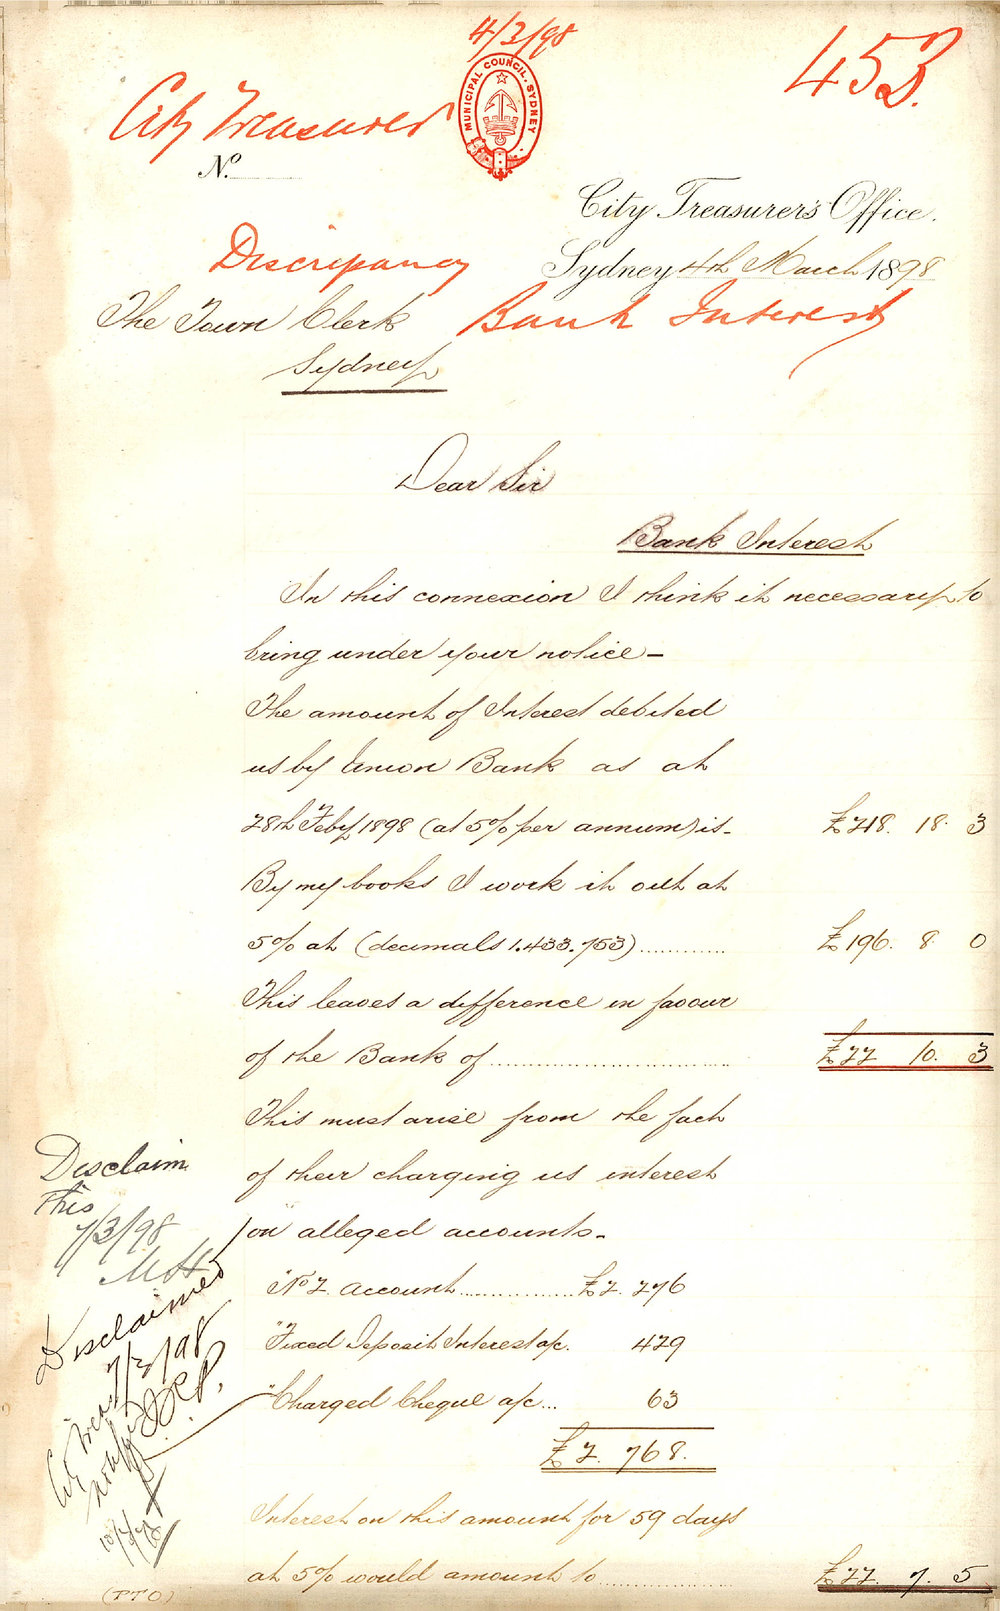 4/3/98
453.
MUNICIPAL COUNCIL. SYDNEY
City Treasurer
No.
City Treasurer's Office.
Discrepancy
Sydney 4th March 1898
The Town Clerk
Bank Interest
Sydney
Dear Sir
Bank Interest
In this connexion I think it necessary to
bring under your notice —
The amount of Interest debited
us by Union Bank as at
28th Feby 1898 (at 5% per annum) is — £218. 18. 3
By my books I work it out at
5% at (decimals 1.433.753) ............ £196. 8 0
This leaves a difference in favour
of the Bank of ............ £22 10. 3
This must arise from the fact
of their charging us interest
on alleged accounts —
"No 2. account ............ £2. 276
"Fixed Deposit Interest a/c. 429
"Charged Cheque a/c ... 63
£2. 768.
Interest on this amount for 59 days
at 5% would amount to ............ £22. 7. 5
Disclaim
this
7/3/98
MH
Disclaimed
7/3/98
City Treas
notified
10/3/98
(PTO)